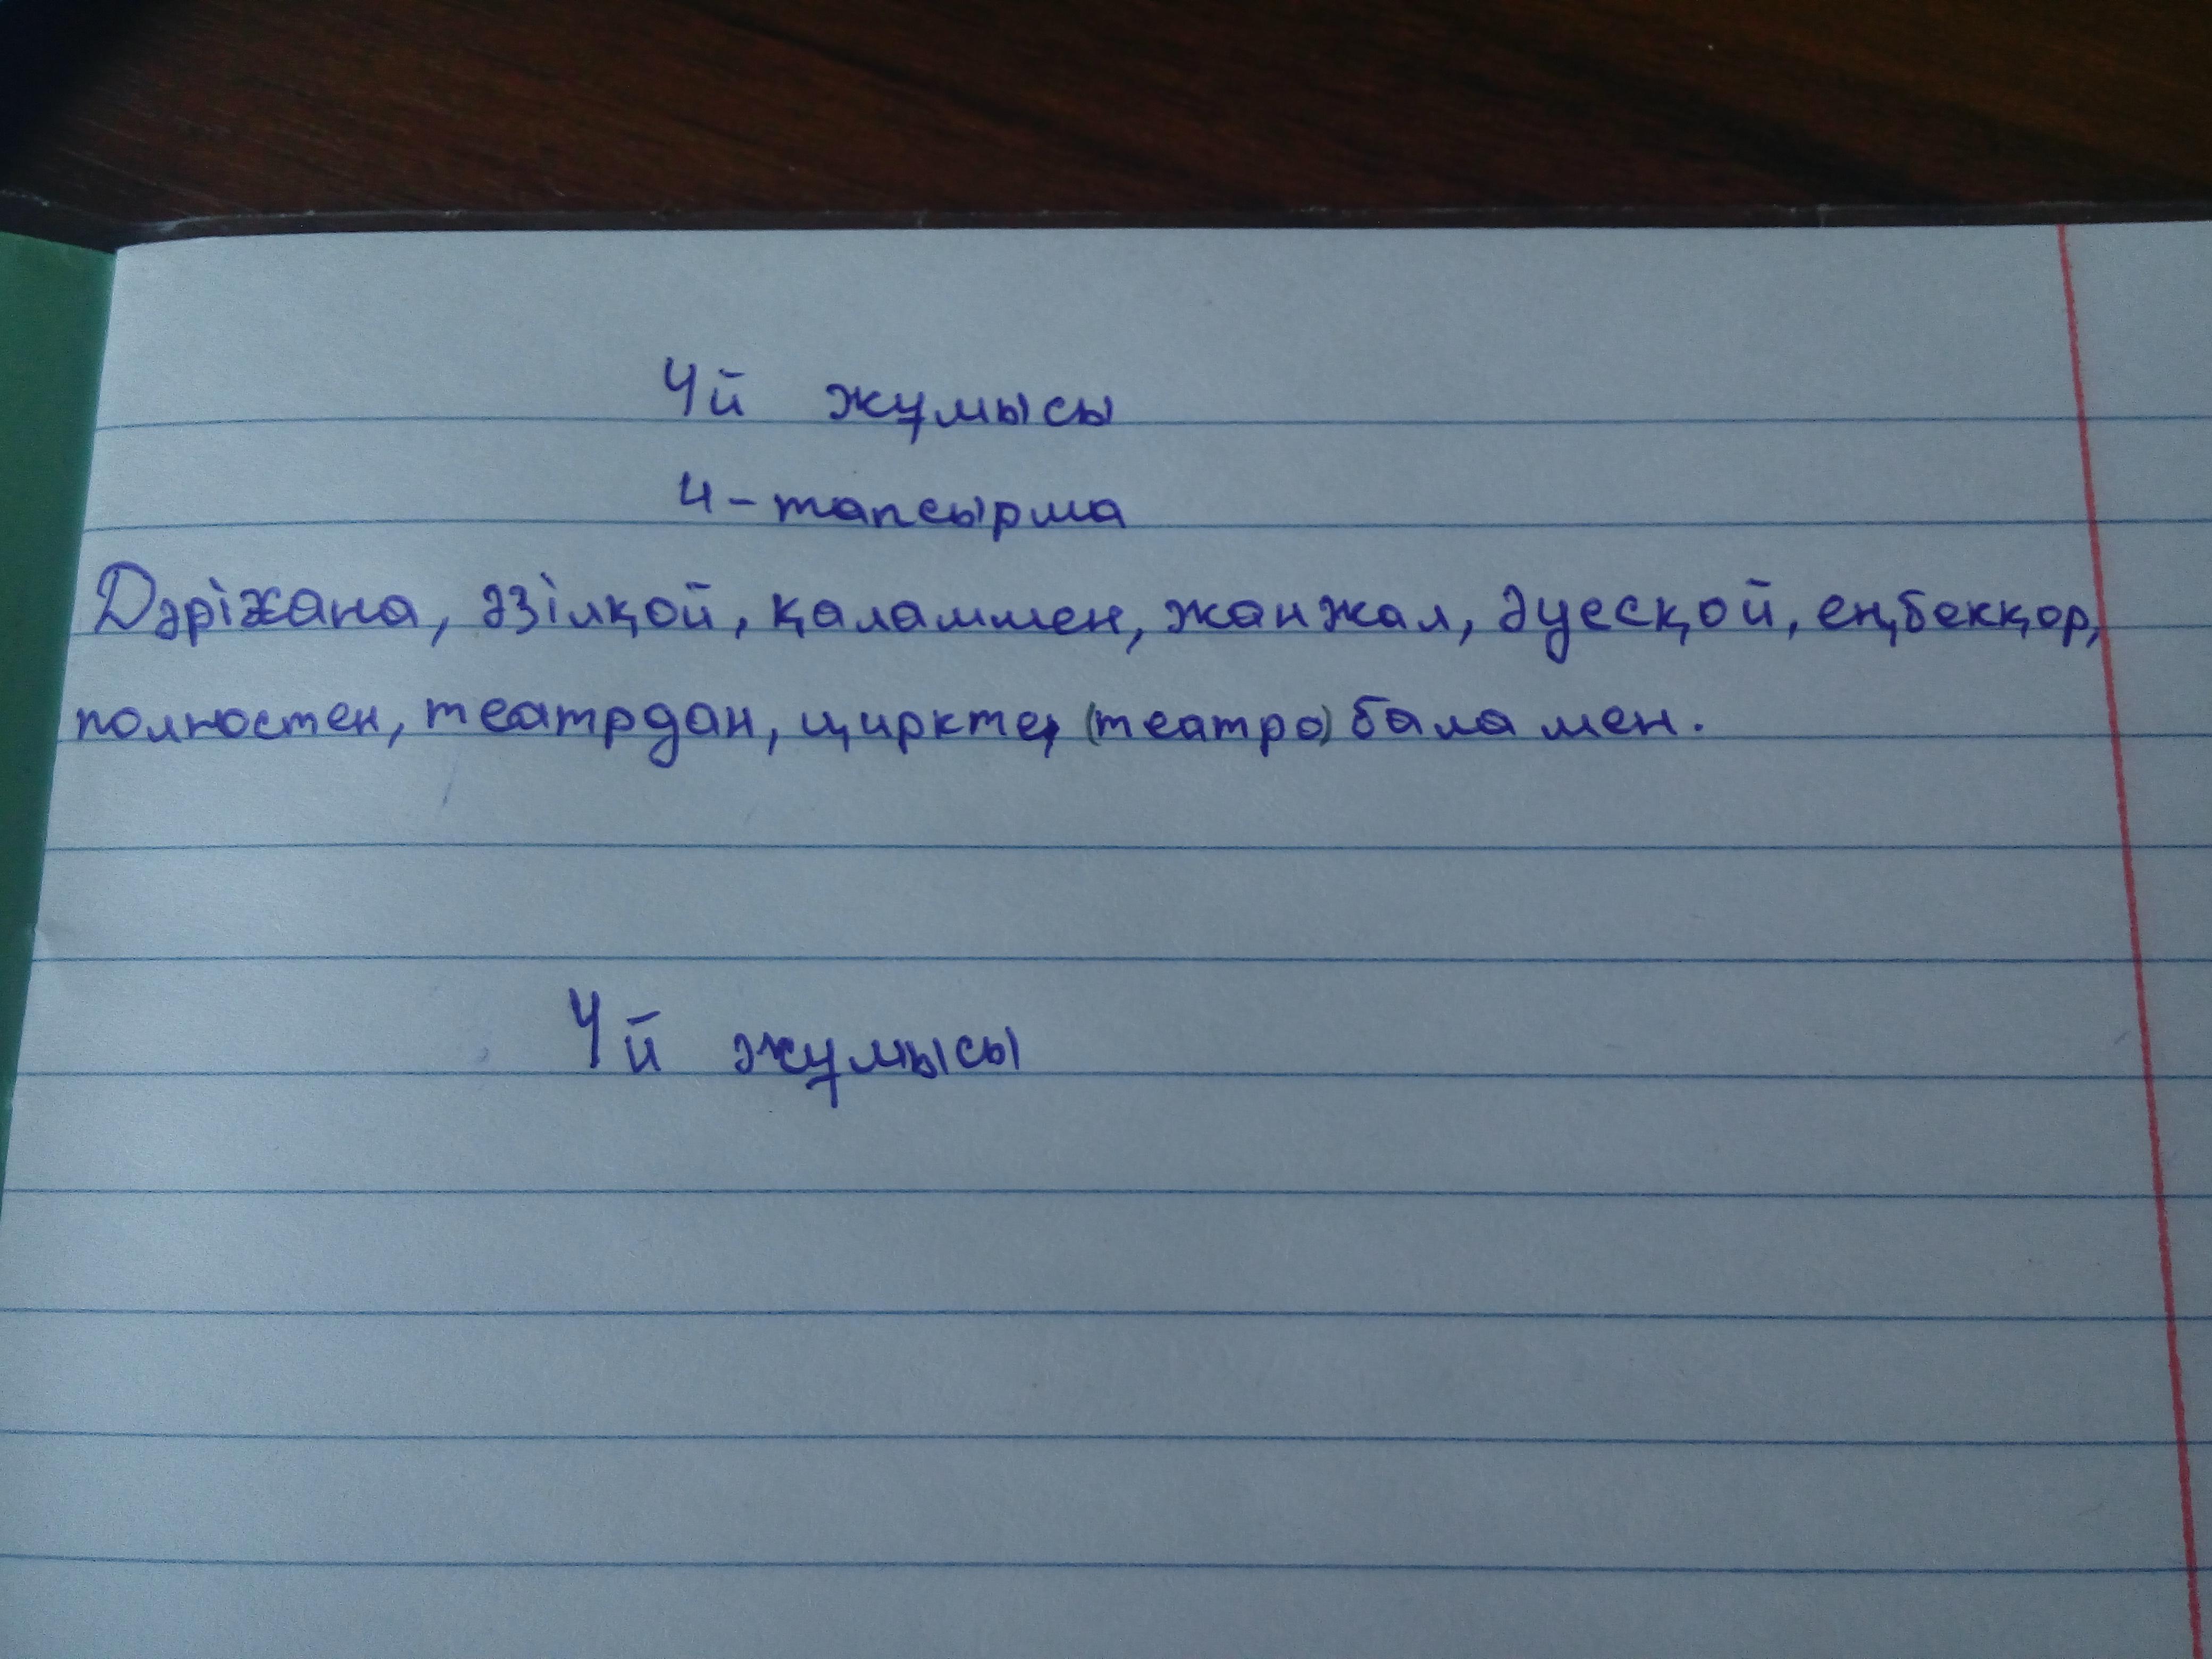 Үй жұмысы
4-тапсырма
Дәріхана, әзілқой, қаламмен, жанжал, әуесқой, еңбекқор,
полюстен, театрдан, циркте, (театро) бала мен.
Үй жұмысы